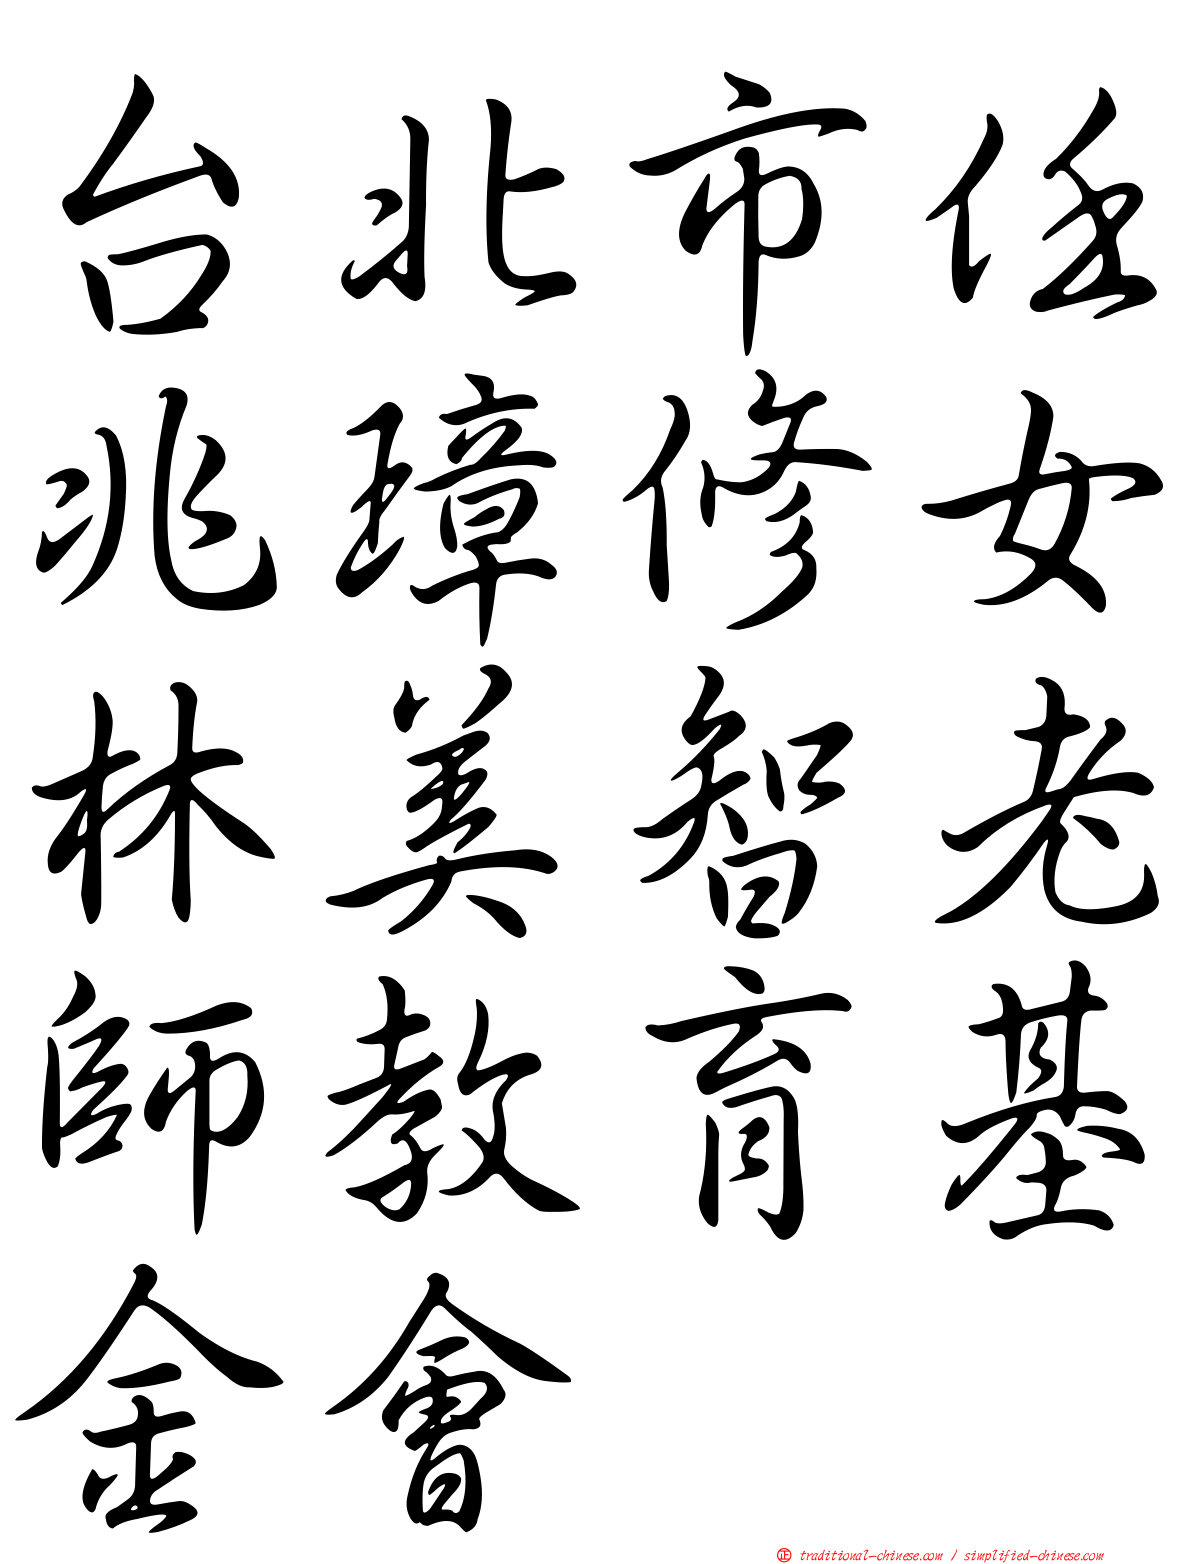 台北市任
兆璋修女
林美智老
師教育基
金會
正 traditional-chinese.com / simplified-chinese.com